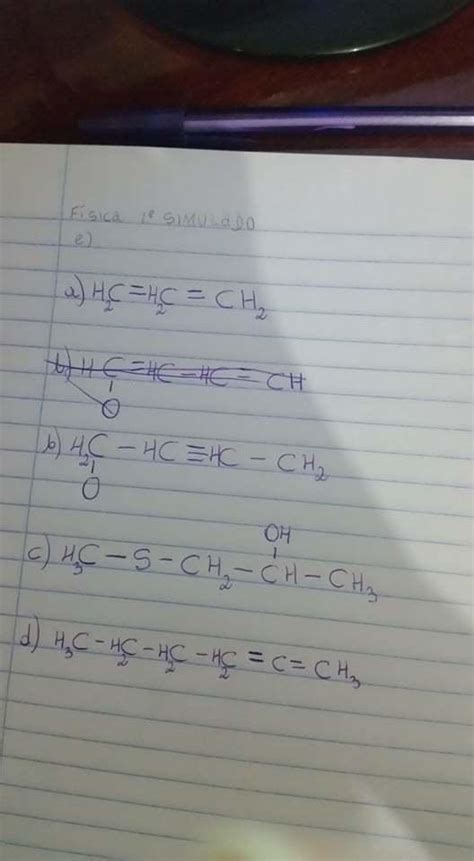 Física 1º SIMULADO
e)
a) H₂C=H₂C=CH₂
b) HC=HC-HC=CH
O
b) H₂C-HC≡HC-CH₂
O
OH
c) H₃C-S-CH₂-CH-CH₃
d) H₃C-H₂C-H₂C-H₂C=C=CH₃